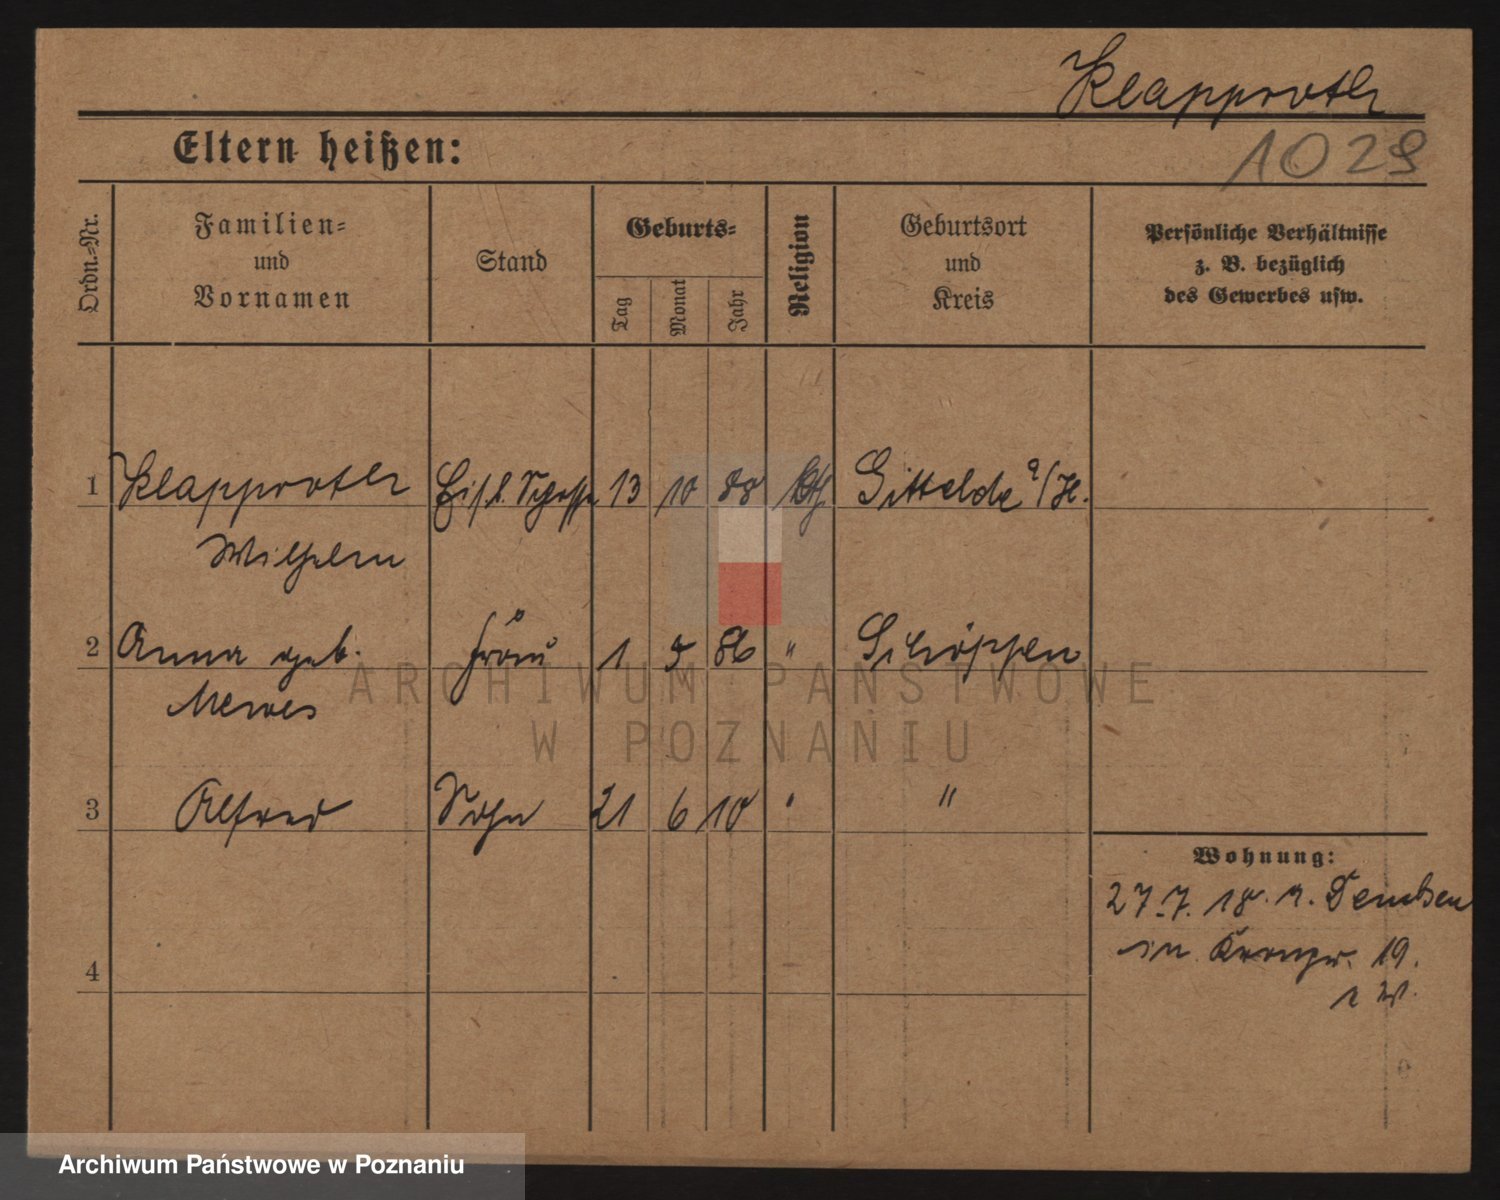 Klapproth
1029
Eltern heißen:
Ordn.=Nr.
Familien=
und
Vornamen
Stand
Geburts=
Tag
Monat
Jahr
Religion
Geburtsort
und
Kreis
Persönliche Verhältnisse
z. B. bezüglich
des Gewerbes usw.
1 Klapproth 13 10 88 Gittelde a/H.
Wilhelm
2 Anna geb. Frau 1 5 86 " Schöppen
Mewes
3 Alfred Sohn 21 6 10 " "
Wohnung:
27.7.18. n. Demsen
in Kronpr. 19.
4
ARCHIWUM PAŃSTWOWE
W POZNANIU
Archiwum Państwowe w Poznaniu